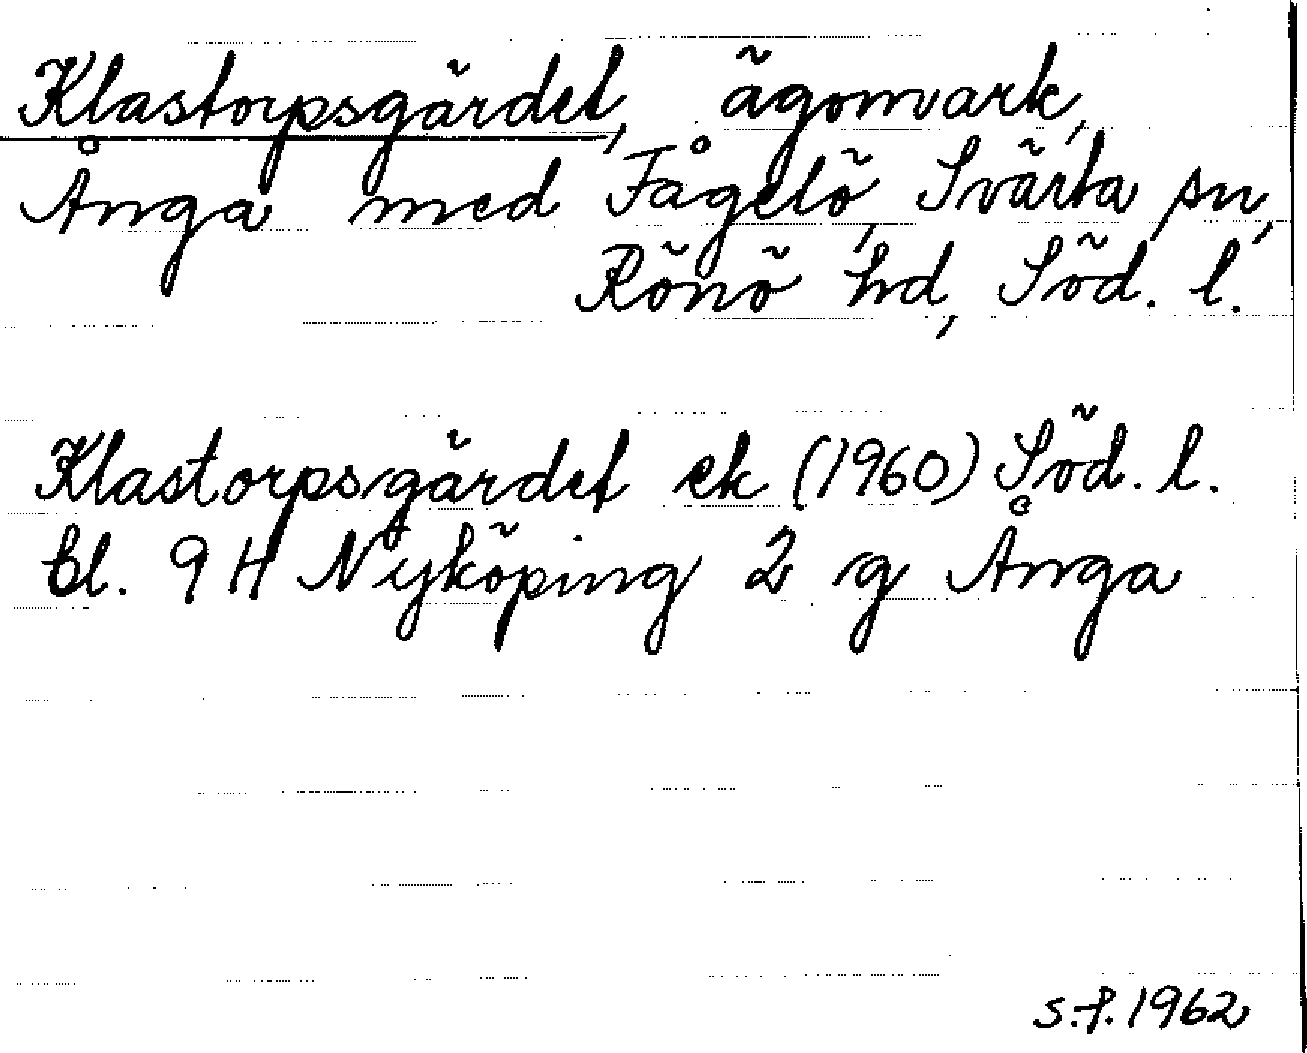 Klastorpsgärdet, ägomark,
Ånga med Fågelö, Svärta sn,
Rönö hd, Söd. l.
Klastorpsgärdet ek (1960) Söd. l.
bl. 9 H Nyköping 2 g Ånga
s.f. 1962